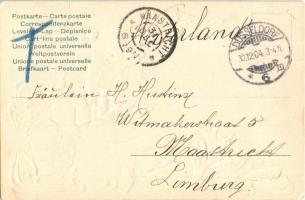 Postkarte – Carte postale
Correspondenzkarte
Levelező-Lap – Dopisnice
Union postale universelle
Weltpostverein
Union postale universelle
Briefkaart – Postcard
MAASTRICHT
DÜSSELDORF
30.12.04. 3-4 N.
6
Fräulein H. Hustinx
Witmakerstraat 5
Maastricht
Limburg.